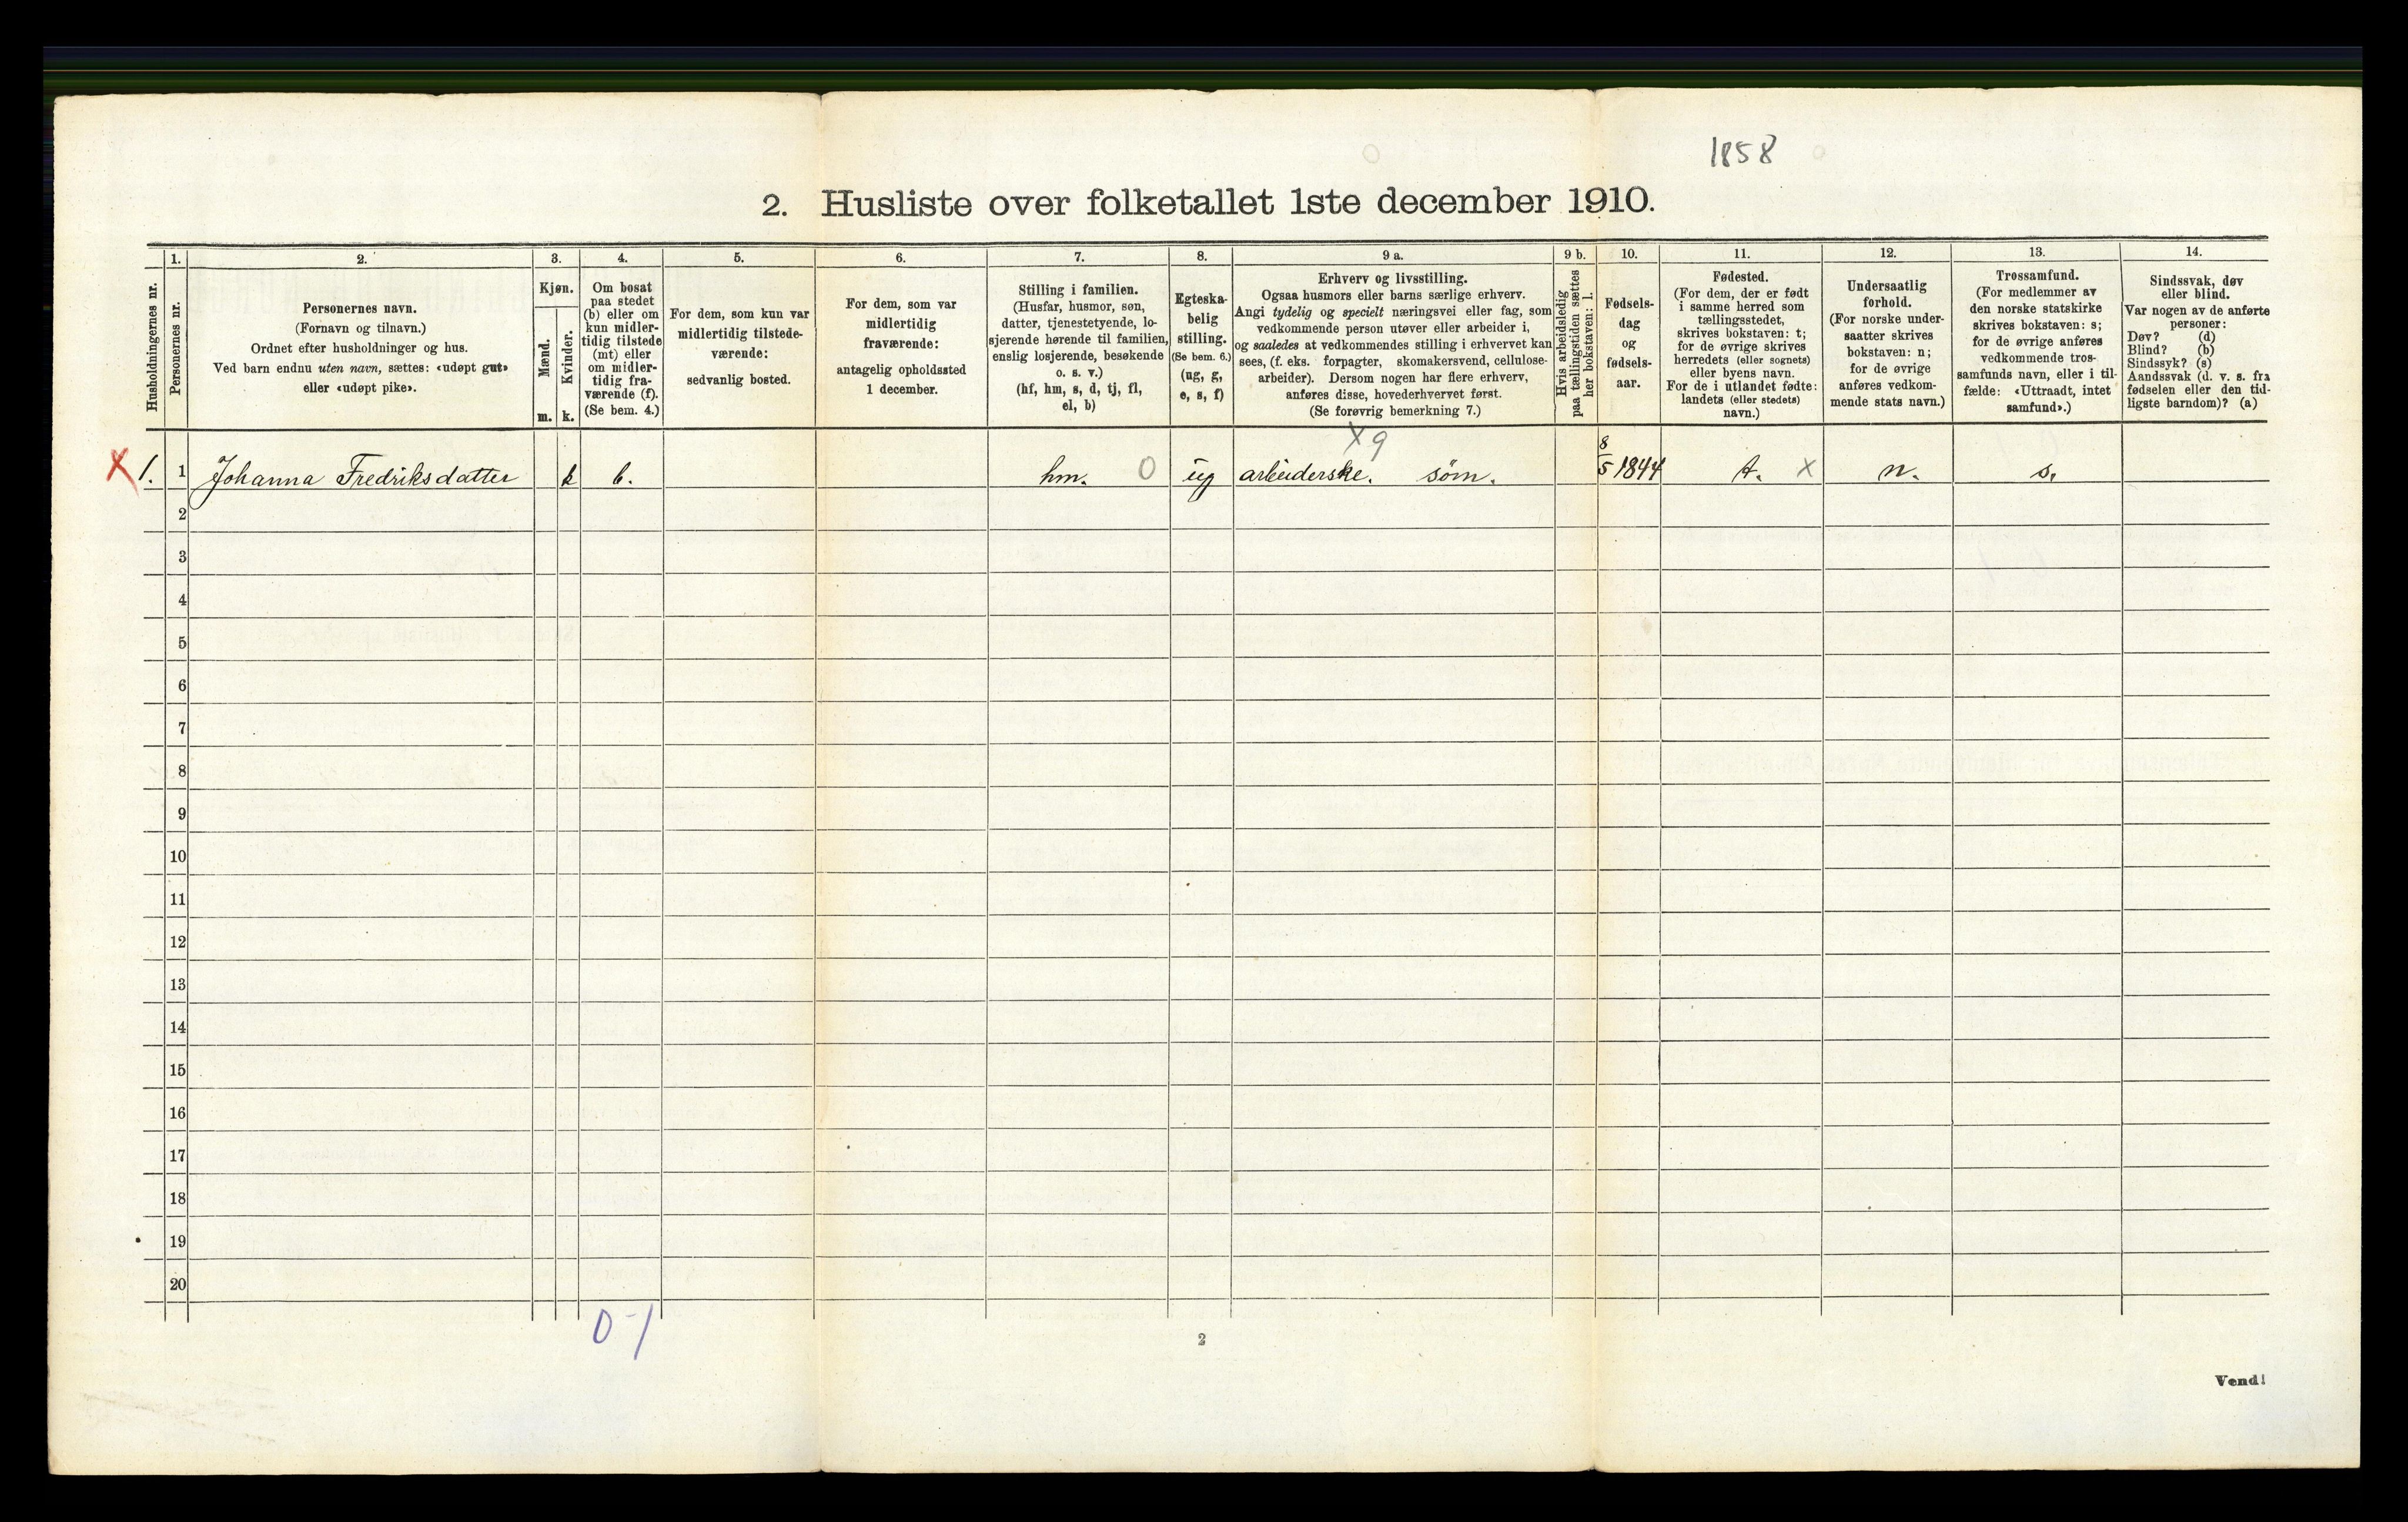 1858
2. Husliste over folketallet 1ste december 1910.
Husholdningernes nr.
1.
Personernes nr.
2.
Personernes navn.
(Fornavn og tilnavn.)
Ordnet efter husholdninger og hus.
Ved barn endnu uten navn, sættes: «udøpt gut»
eller «udøpt pike».
3.
Kjøn.
Mænd.
m.
Kvinder.
k.
4.
Om bosat
paa stedet
(b) eller om
kun midler-
tidig tilstede
(mt) eller
om midler-
tidig fra-
værende (f).
(Se bem. 4.)
5.
For dem, som kun var
midlertidig tilstede-
værende:
sedvanlig bosted.
6.
For dem, som var
midlertidig
fraværende:
antagelig opholdssted
1 december.
7.
Stilling i familien.
(Husfar, husmor, søn,
datter, tjenestetyende, lo-
sjerende hørende til familien,
enslig losjerende, besøkende
o. s. v.)
(hf, hm, s, d, tj, fl,
el, b)
8.
Egteska-
belig
stilling.
(Se bem. 6.)
(ug, g,
e, s, f)
9 a.
Erhverv og livsstilling.
Ogsaa husmors eller barns særlige erhverv.
Angi tydelig og specielt næringsvei eller fag, som
vedkommende person utøver eller arbeider i,
og saaledes at vedkommendes stilling i erhvervet kan
sees, (f. eks. forpagter, skomakersvend, cellulose-
arbeider). Dersom nogen har flere erhverv,
anføres disse, hovederhvervet først.
(Se forøvrig bemerkning 7.)
9 b.
Hvis arbeidsledig
paa tællingstiden sættes
her bokstaven: l.
10.
Fødsels-
dag
og
fødsels-
aar.
11.
Fødested.
(For dem, der er født
i samme herred som
tællingsstedet,
skrives bokstaven: t;
for de øvrige skrives
herredets (eller sognets)
eller byens navn.
For de i utlandet fødte:
landets (eller stedets)
navn.)
12.
Undersaatlig
forhold.
(For norske under-
saatter skrives
bokstaven: n;
for de øvrige
anføres vedkom-
mende stats navn.)
13.
Trossamfund.
(For medlemmer av
den norske statskirke
skrives bokstaven: s;
for de øvrige anføres
vedkommende tros-
samfunds navn, eller i til-
fælde: «Uttraadt, intet
samfund».)
14.
Sindssvak, døv
eller blind.
Var nogen av de anførte
personer:
Døv? (d)
Blind? (b)
Sindssyk? (s)
Aandssvak (d. v. s. fra
fødselen eller den tid-
ligste barndom)? (a)
X 9
X 1. 1 Johanna Fredriksdatter k b. hm. 0 ug arbeiderske. søm. 8/5 1844 t. X n. s.
2
3
4
5
6
7
8
9
10
11
12
13
14
15
16
17
18
19
20
0-1
2
Vend!